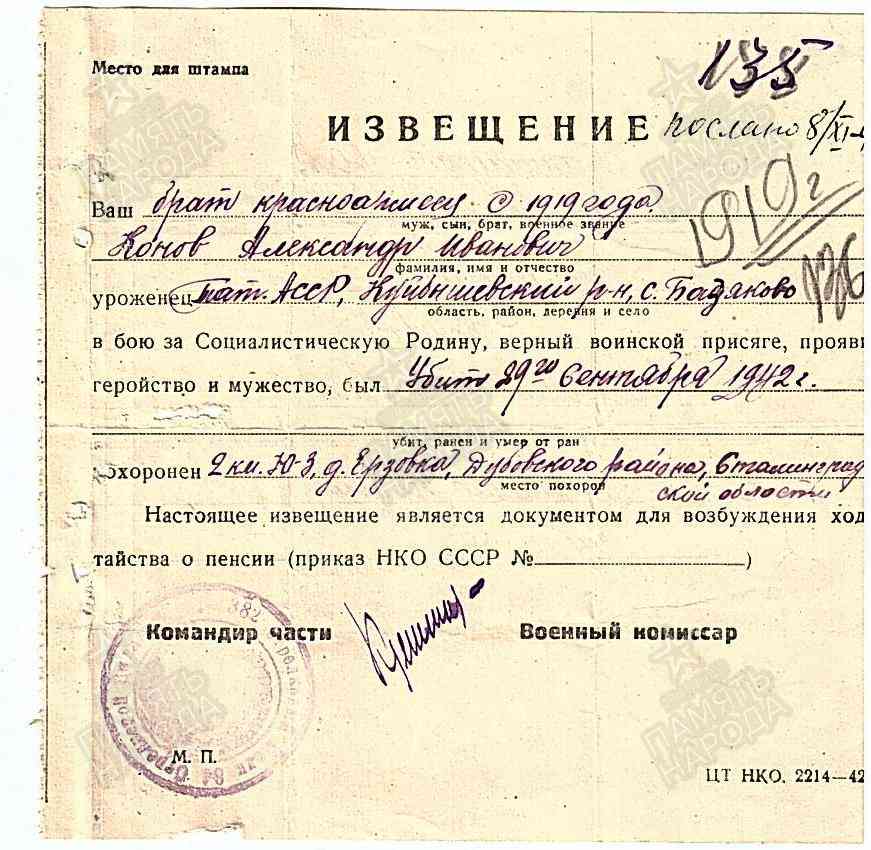 Место для штампа
135
ИЗВЕЩЕНИЕ послано 8/XI-4
1919 г
Ваш брат красноармеец с 1919 года.
муж, сын, брат, военное звание
Конов Александр Иванович
фамилия, имя и отчество
136
уроженец Тат. АССР, Куйбышевский р-н, с. Базяково
область, район, деревня и село
в бою за Социалистическую Родину, верный воинской присяге, прояви
геройство и мужество, был Убит 29го Сентября 1942 г.
убит, ранен и умер от ран
похоронен 2 км. Ю-З, д. Ерзовка, Дубовского района, Сталинград
место похорон
ской области
Настоящее извещение является документом для возбуждения ход
тайства о пенсии (приказ НКО СССР №)
382
Командир части Военный комиссар
М. П.
ЦТ НКО. 2214—42
ПАМЯТЬ НАРОДА